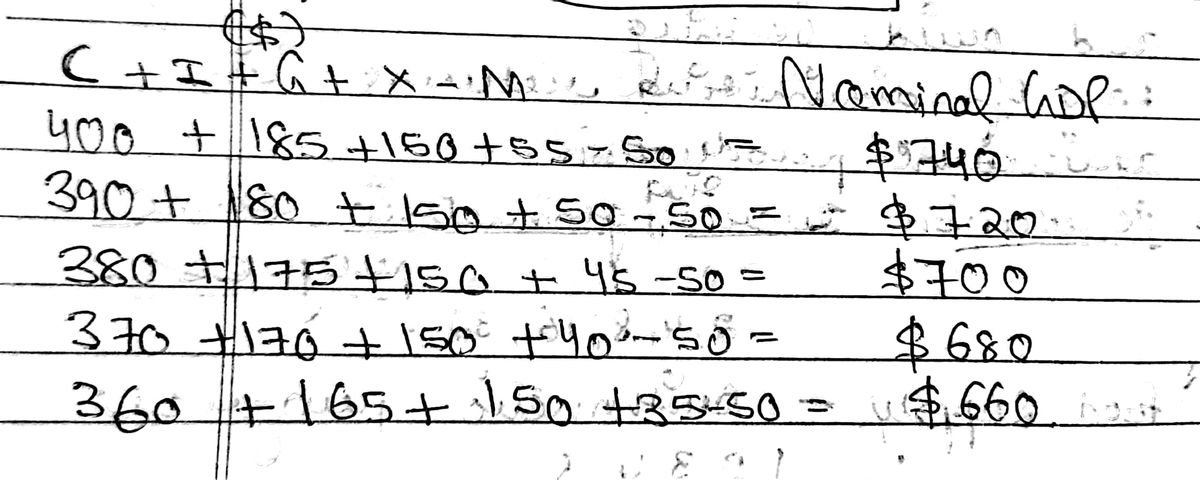 ($)
C + I + G + X - M Nominal GDP
400 + 185 + 150 + 55 - 50 = $740
390 + 180 + 150 + 50 - 50 = $720
380 + 175 + 150 + 45 - 50 = $700
370 + 170 + 150 + 40 - 50 = $680
360 + 165 + 150 + 35 - 50 = $660